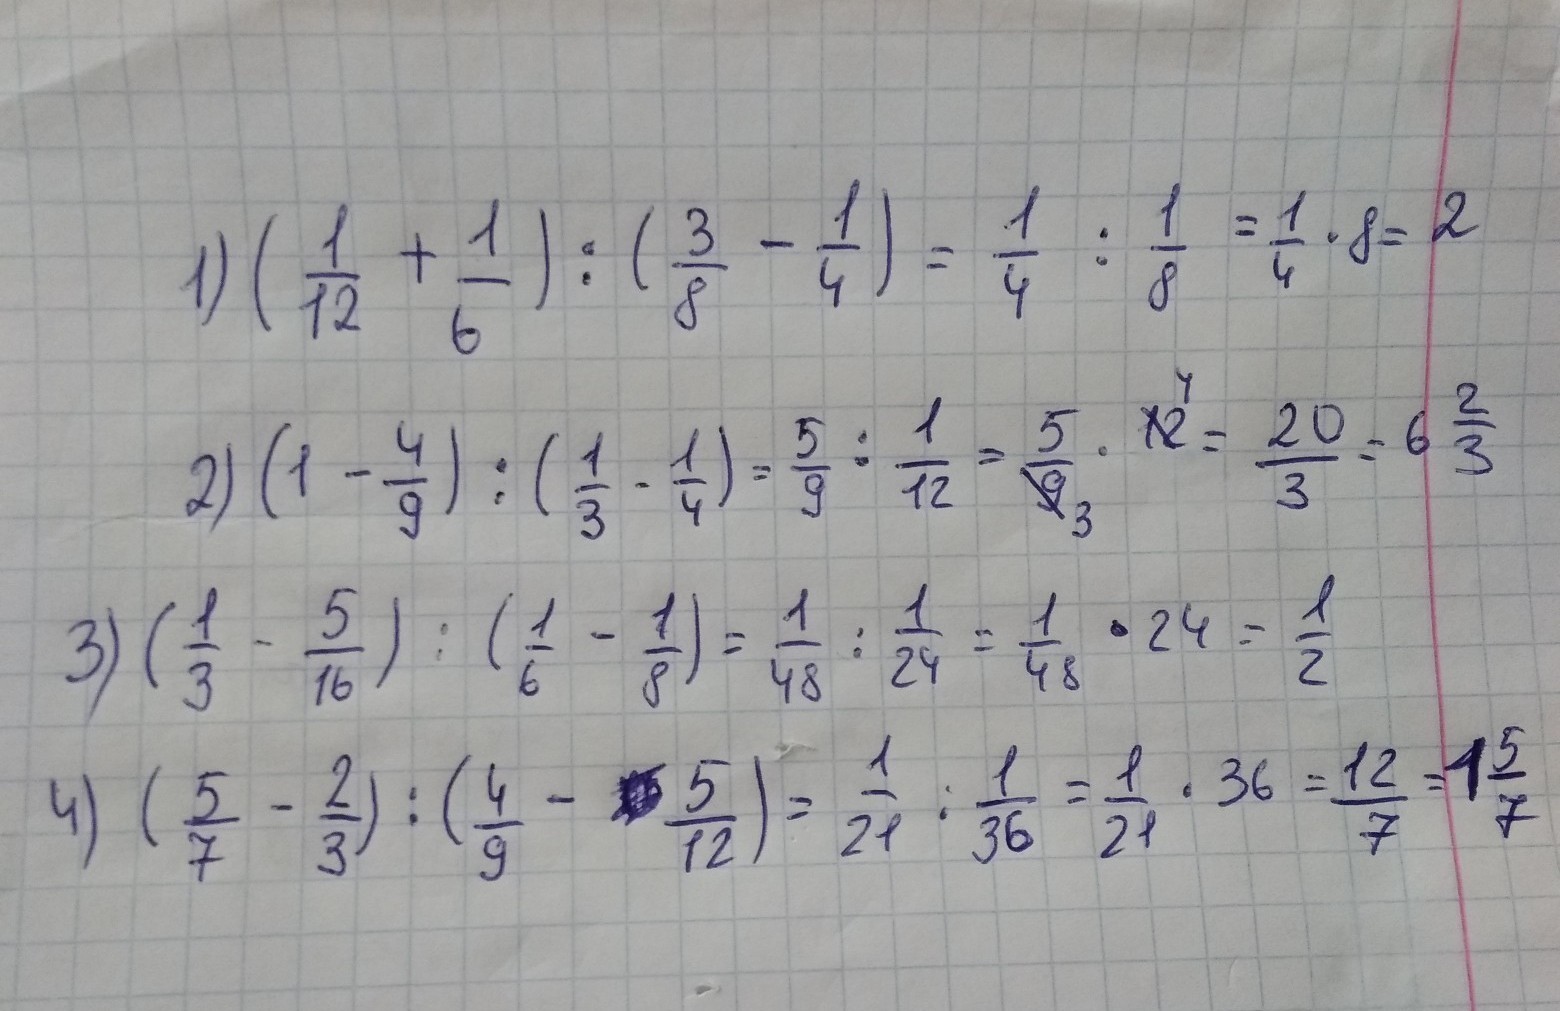 1) (1/12 + 1/6) : (3/8 - 1/4) = 1/4 : 1/8 = 1/4 · 8 = 2
2) (1 - 4/9) : (1/3 - 1/4) = 5/9 : 1/12 = 5/9 3 · 12 4 = 20/3 = 6 2/3
3) (1/3 - 5/16) : (1/6 - 1/8) = 1/48 : 1/24 = 1/48 · 24 = 1/2
4) (5/7 - 2/3) : (4/9 - 5/12) = 1/21 : 1/36 = 1/21 · 36 = 12/7 = 1 5/7